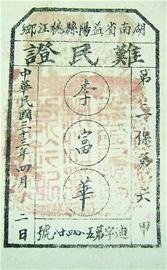 湖南省益陽縣桃江鄉
難民證
第二保第六甲
李富華
中華民國三十三年四月二日
字第五·四〇四十八號